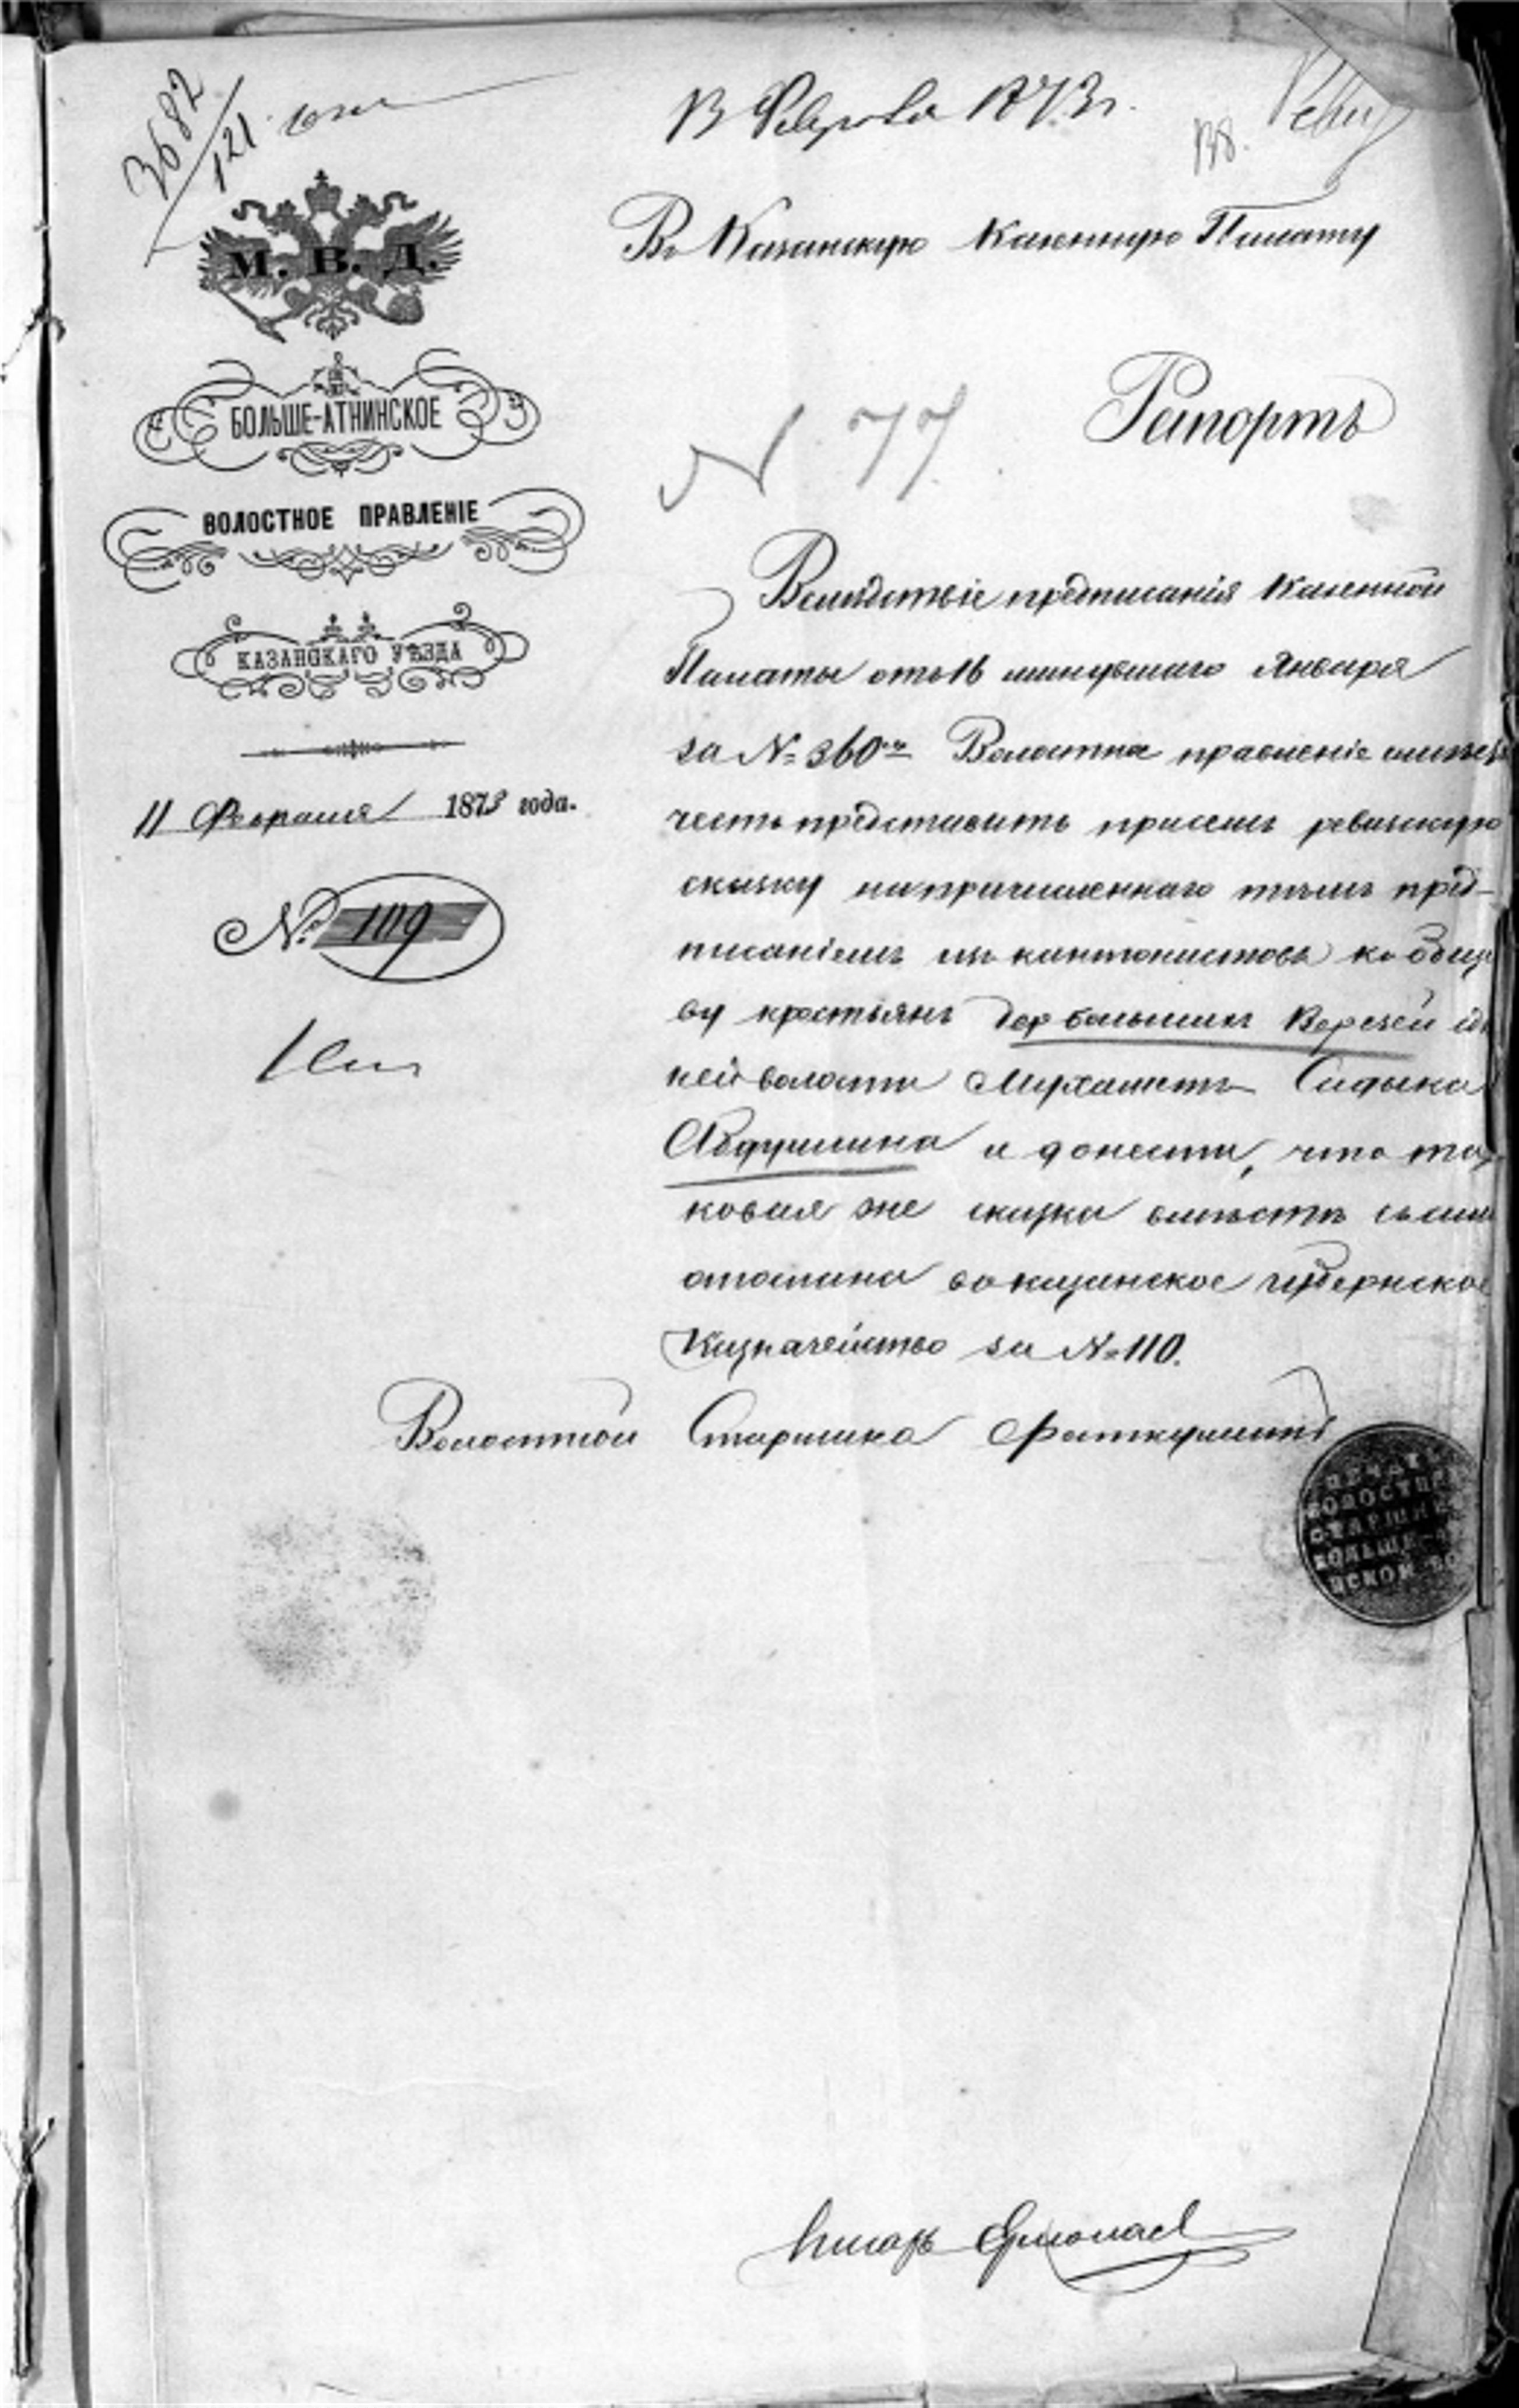 3682
121
13 Февраля 1873 г.
М. В. Д.
Въ Казанскую Казенную Палату
БОЛЬШЕ-АТНИНСКОЕ
ВОЛОСТНОЕ ПРАВЛЕНІЕ
КАЗАНСКАГО УѢЗДА
11 Февраля 1873 года.
№ 109
N 77
Рапортъ
Вслѣдствіе предписанія Казенной
Палаты отъ 16 минувшаго Января
за № 360 Волостное правленіе имѣетъ
честь представить при семъ ревизскую
сказку на причисленнаго тѣмъ пред-
писаніемъ изъ кантонистовъ къ общес
ву крестьянъ дер большихъ Верезей сд
ней волости Мухаметъ Садыка
Абдуллина и донести, что та-
ковая же сказка вмѣстѣ съ симъ
отослана въ казанское губернское
Казначейство за № 110.
Волостной Старшина Фаткуллинъ
ПЕЧАТЬ
ВОЛОСТН
СТАРШИН
БОЛЬШЕ-АТ
НСКОЙ ВО
Писарь Ермолаев